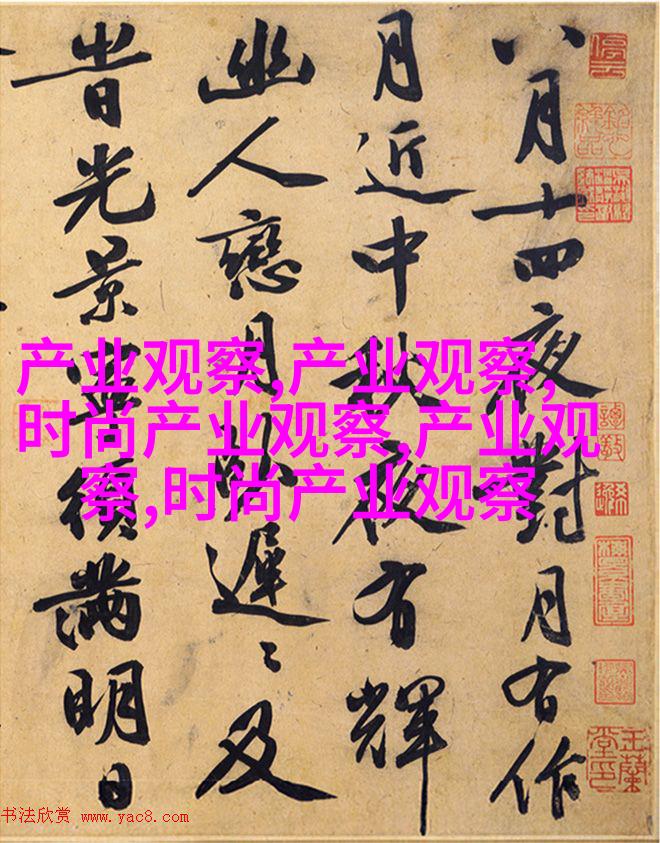 八月十四夜對月有作
月近中秋夜有輝
幽人戀月臥遲〻及
旹光景須滿明日
产业观察,产业观察,
时尚产业观察,产业观
察,时尚产业观察
停云
玉蘭堂印
书法欣赏 www.yac8.com